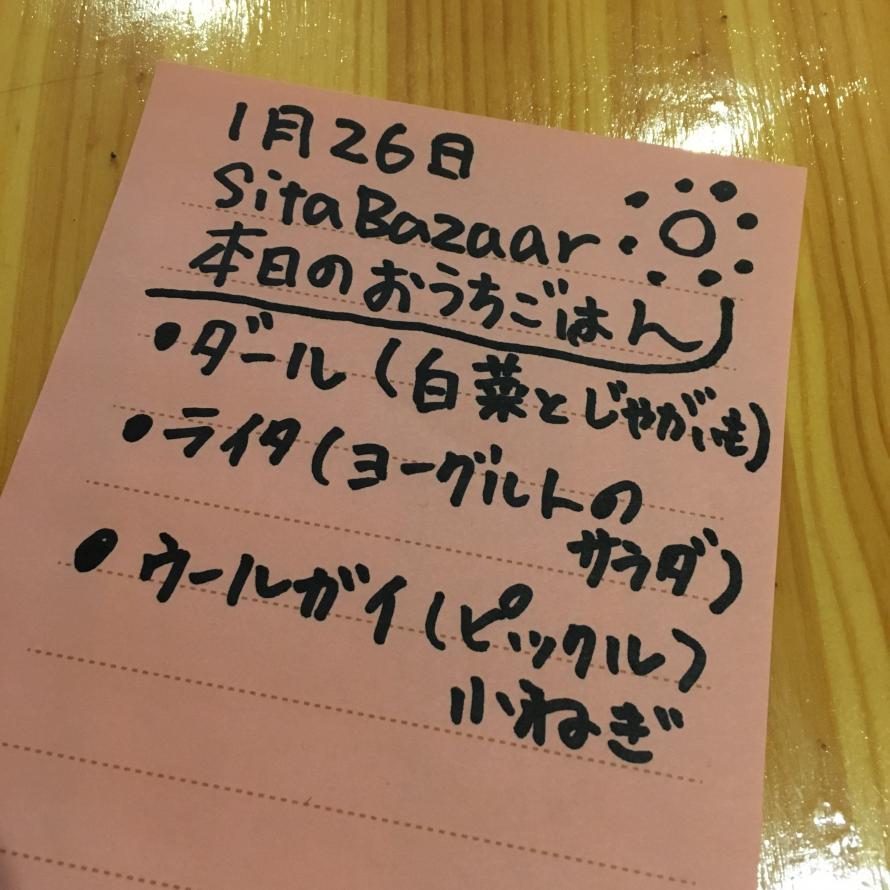 1月26日
Sita Bazaar
本日のおうちごはん
・ダール(白菜とじゃがいも)
・ライタ(ヨーグルトの
サラダ)
・ウールガイ(ピックル)
小ねぎ